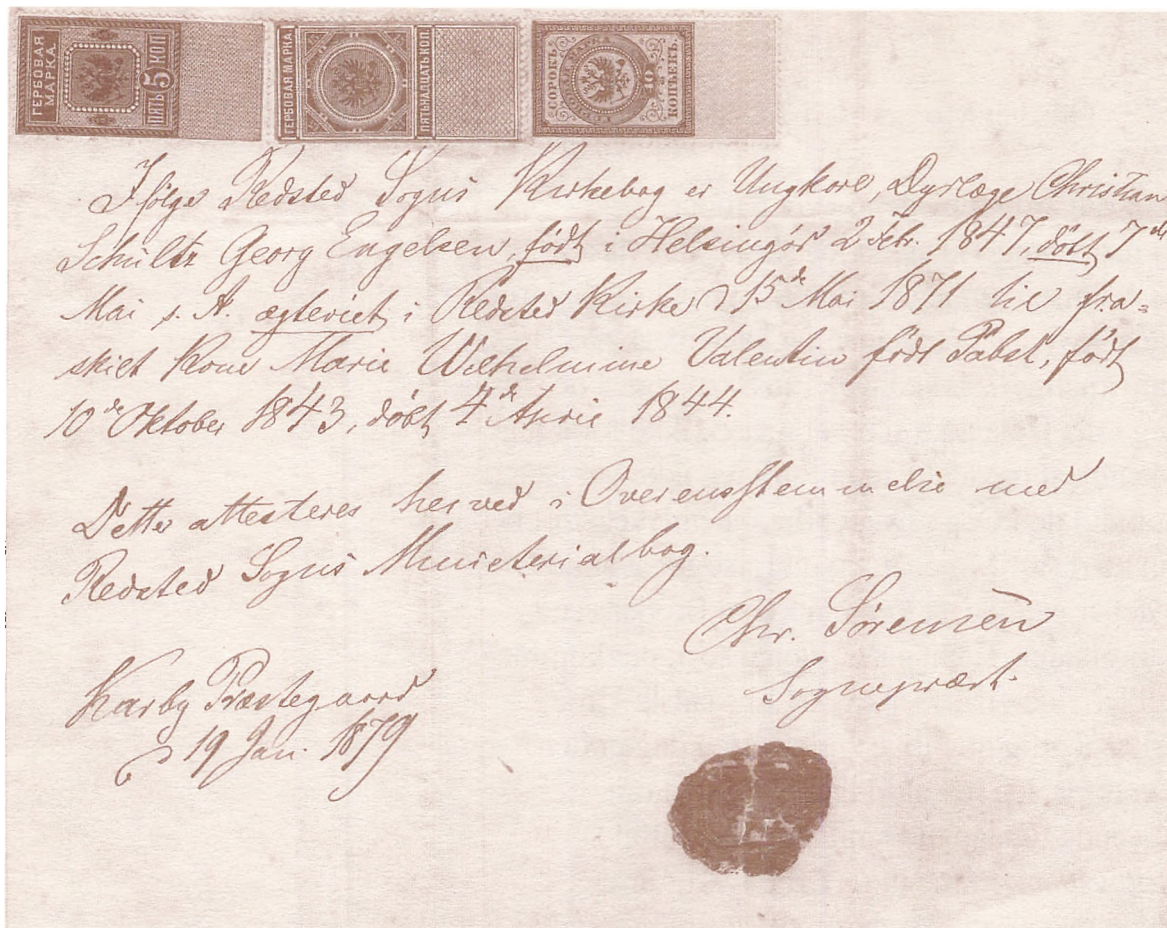 ГЕРБОВАЯ МАРКА. ПЯТЬ 5 КОП
ГЕРБОВАЯ МАРКА ПЯТЬНАДЦАТЬ КОП.
СОРОКЪ 40 КОПѢЕКЪ.
Ifølge Redsted Sogns Kirkebog er Ungkarl, Dyrlæge Christian
Schultz Georg Engelsen, født i Helsingör 2 Febr. 1847, döbt 7de
Mai s. A. ægteviet i Redsted Kirke D 15de Mai 1871 til fra=
skilt Kone Marie Wilhelmine Valentin født Pabst, født
10de Oktober 1843, döbt 4de April 1844.
Dette attesteres herved i Overensstemmelse med
Redsted Sogns Ministerialbog.
Chr. Sørensen
Sognepræst.
Karby Præstegaard
D 19 Jan. 1879